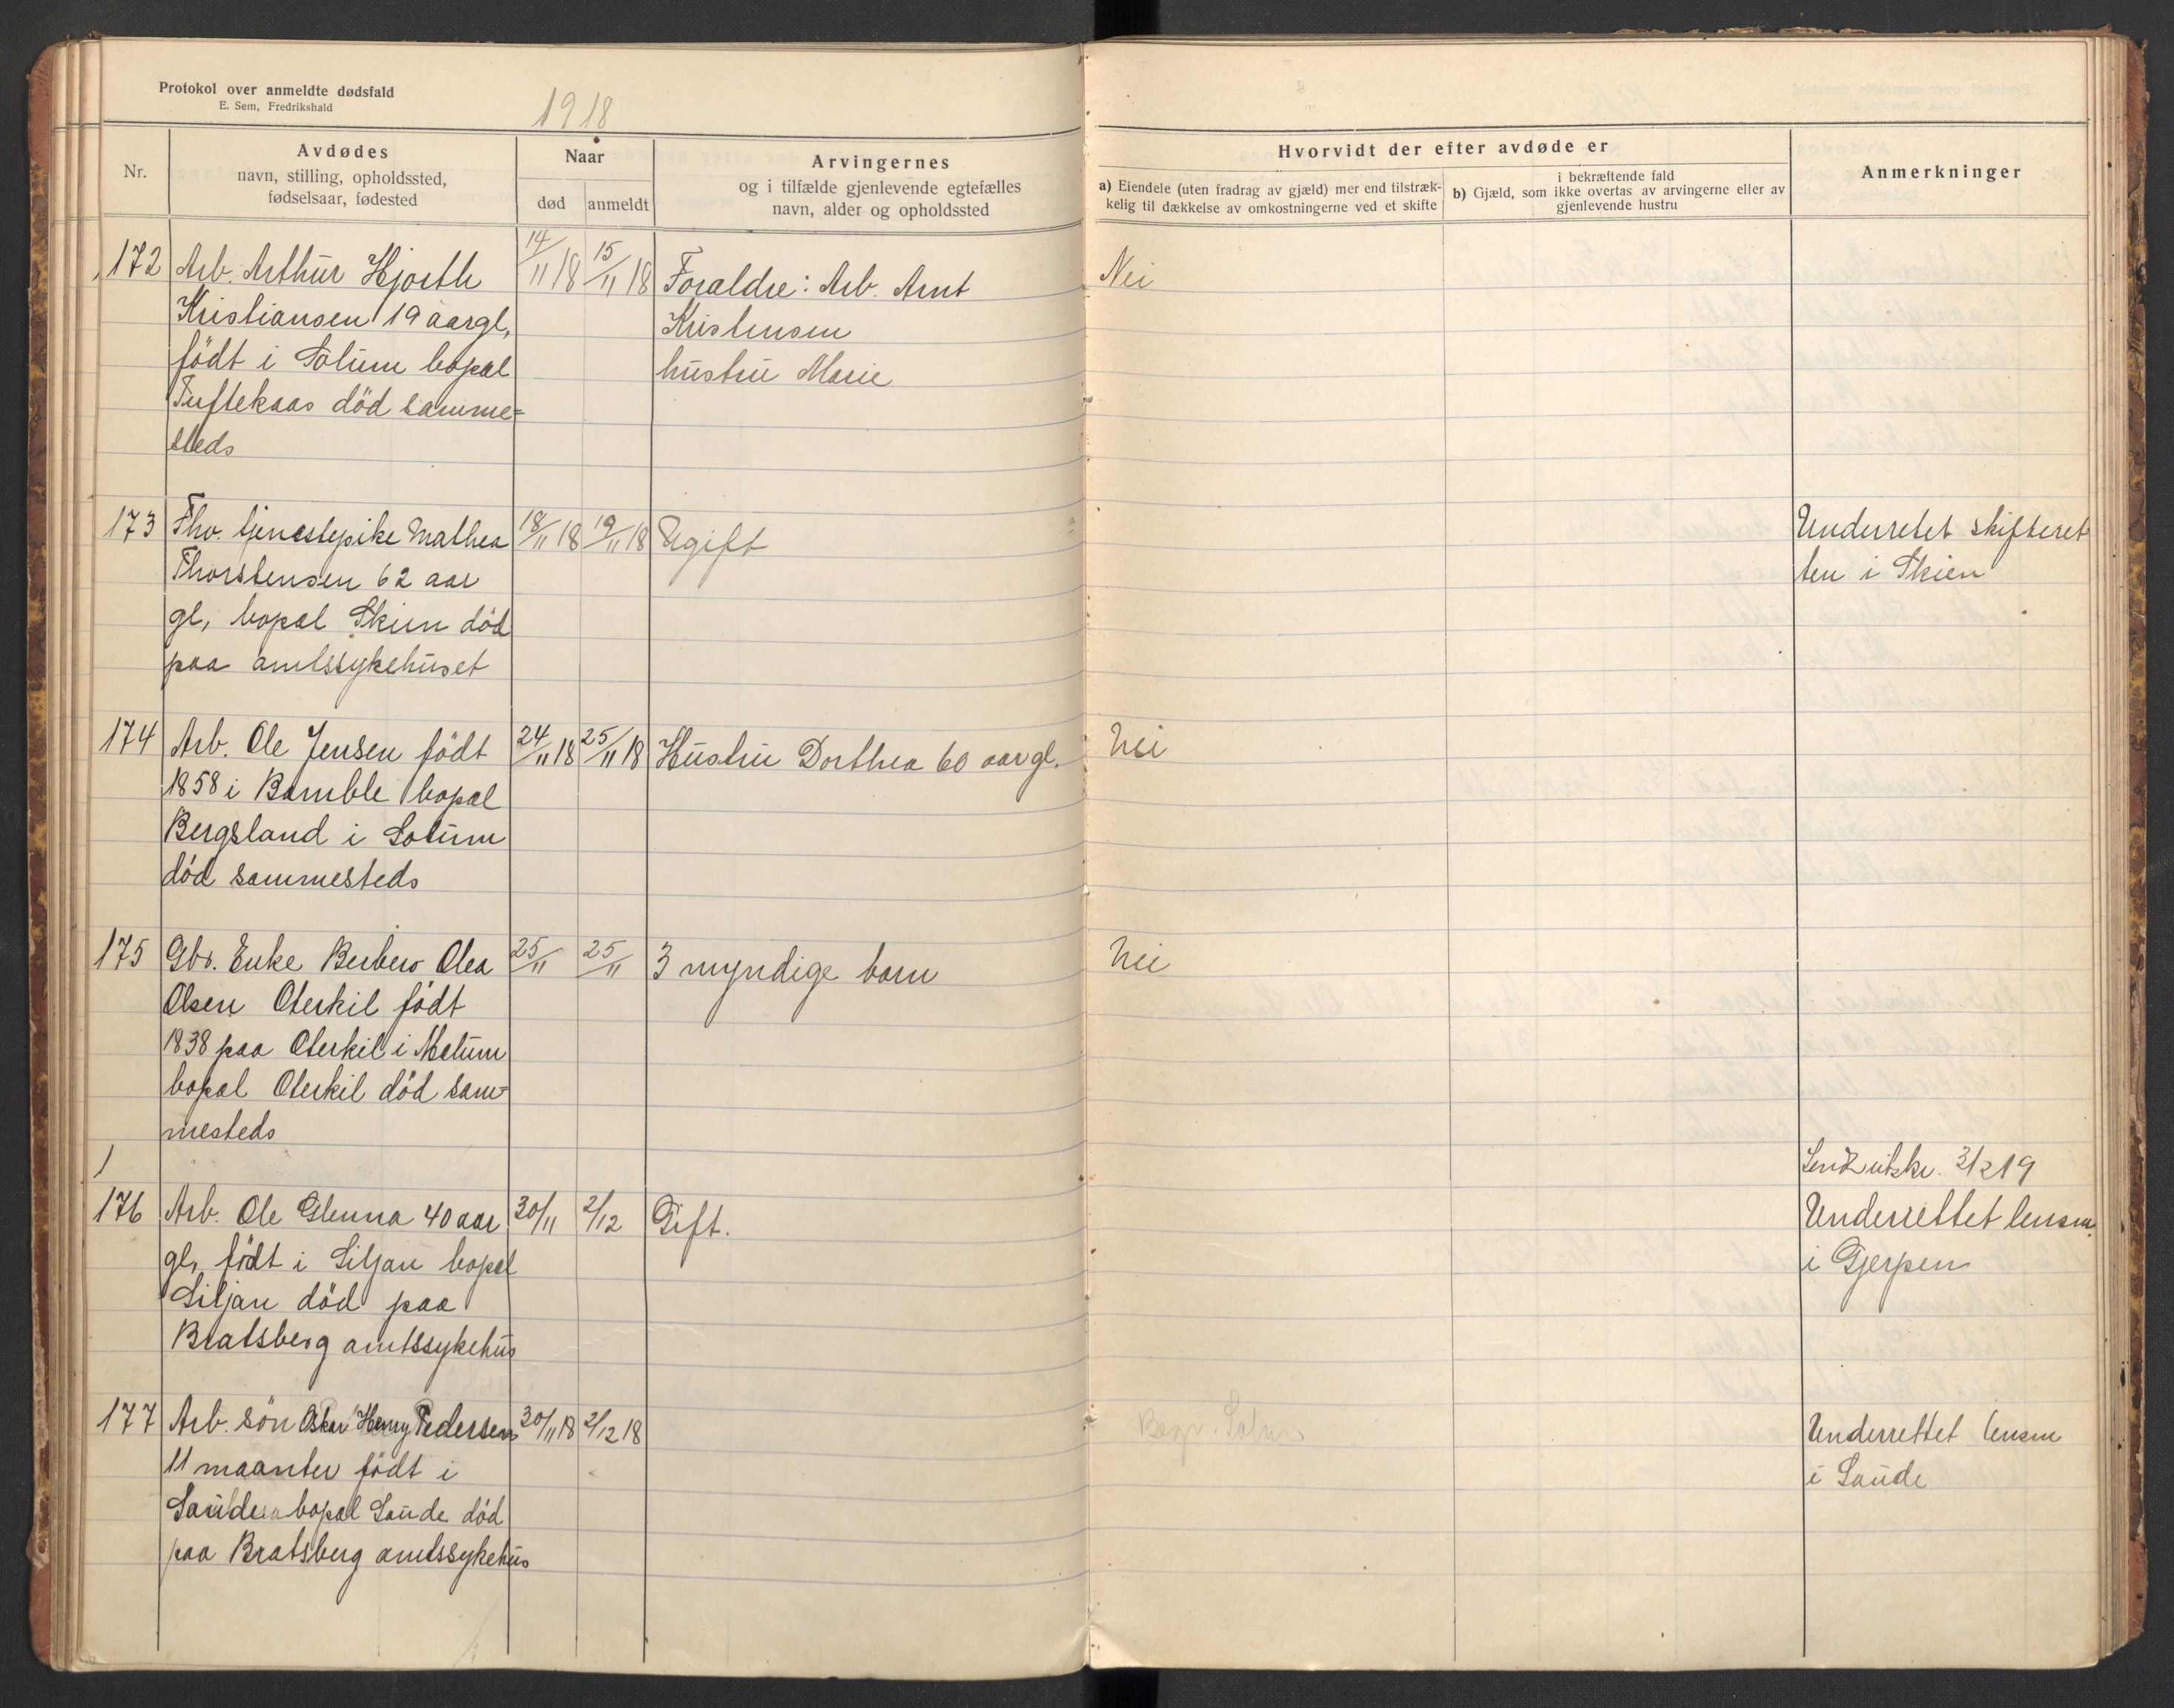 Protokol over anmeldte dødsfald
E. Sem, Fredrikshald
1918
Nr.
Avdødes
navn, stilling, opholdssted,
fødselsaar, fødested
Naar
død
anmeldt
Arvingernes
og i tilfælde gjenlevende egtefælles
navn, alder og opholdssted
Hvorvidt der efter avdøde er
a) Eiendele (uten fradrag av gjæld) mer end tilstræk-
kelig til dækkelse av omkostningerne ved et skifte
i bekræftende fald
b) Gjæld, som ikke overtas av arvingerne eller av
gjenlevende hustru
Anmerkninger
172 Arb. Arthur Hjorth 14/11 18 15/11 18 Foraldre: Arb. Arnt Nei
Kristiansen 19 aargl, Kristensen
födt i Solum bopæl hustru Marie
Tuftekaas död samme=
steds
173 Fhv. tjenestepike Mathea 18/11 18 19/11 18 Ugift Underretet skifteret
Thorstensen 62 aar ten i Skien
gl, bopæl Skien död
paa amtssykehuset
174 Arb. Ole Jensen födt 24/11 18 25/11 18 Hustru Dorthea 60 aar gl. Nei
1858 i Bamble bopæl
Bergsland i Solum
död sammesteds
175 Gbr. Enke Berbero Olea 25/11 25/11 3 myndige barn Nei
Olsen Oterkil födt
1838 paa Oterkil i Melum
bopæl Oterkil död sam-
mesteds
Send utskr. 3/2 19
176 Arb. Ole Glenna 40 aar 30/11 2/12 Gift. Underrettet lensm.
gl, födt i Siljan bopæl i Gjerpen
Siljan död paa
Bratsberg amtssykehus
177 Arb. sön Oskar Henry Pedersen 30/11 18 2/12 18 Underrettet lensm
11 maanter födt i i Saude
Saude bopæl Saude död
paa Bratsberg amtssykehus